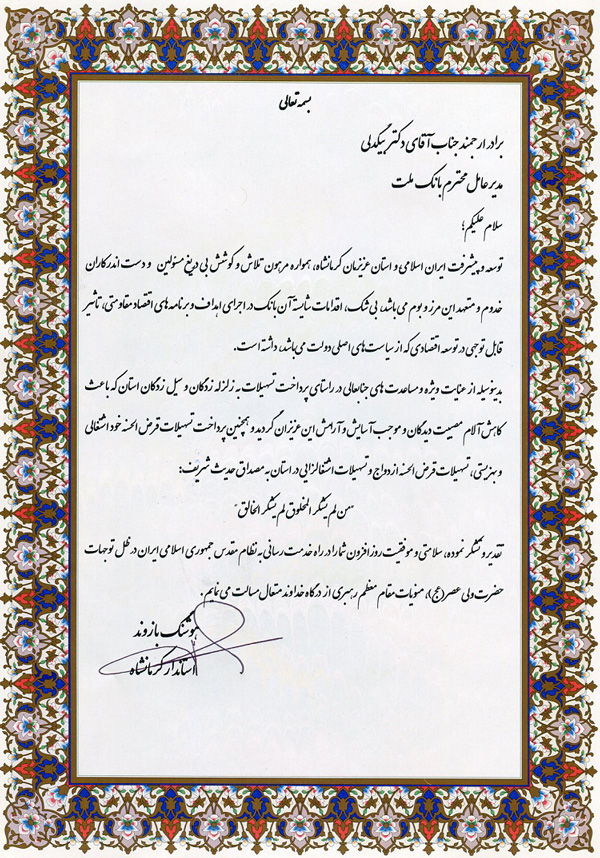 بسمه تعالی
برادر ارجمند جناب آقای دکتر بیگدلی
مدیر عامل محترم بانک ملت
سلام علیکم؛
توسعه و پیشرفت ایران اسلامی و استان عزیزمان کرمانشاه، همواره مرهون تلاش و کوشش بی دریغ مسئولین و دست اندرکاران
خدوم و متعهد این مرز و بوم می باشد، بی شک، اقدامات شایسته آن بانک در اجرای اهداف و برنامه های اقتصاد مقاومتی، تاثیر
قابل توجهی در توسعه اقتصادی که از سیاست های اصلی دولت می باشد، داشته است.
بدینوسیله از عنایت ویژه و مساعدت های جنابعالی در راستای پرداخت تسهیلات به زلزله زدگان و سیل زدگان استان که باعث
کاهش آلام مصیبت دیدگان و موجب آسایش و آرامش این عزیزان گردید و همچنین پرداخت تسهیلات قرض الحسنه خود اشتغالی
و بهزیستی، تسهیلات قرض الحسنه ازدواج و تسهیلات اشتغالزایی در استان به مصداق حدیث شریف:
"من لم یشکر المخلوق لم یشکر الخالق"
تقدیر و تشکر نموده، سلامتی و موفقیت روز افزون شما را در راه خدمت رسانی به نظام مقدس جمهوری اسلامی ایران در ظل توجهات
حضرت ولی عصر (عج)، منویات مقام معظم رهبری از درگاه خداوند متعال مسالت می نمایم.
هوشنگ بازوند
استاندار کرمانشاه